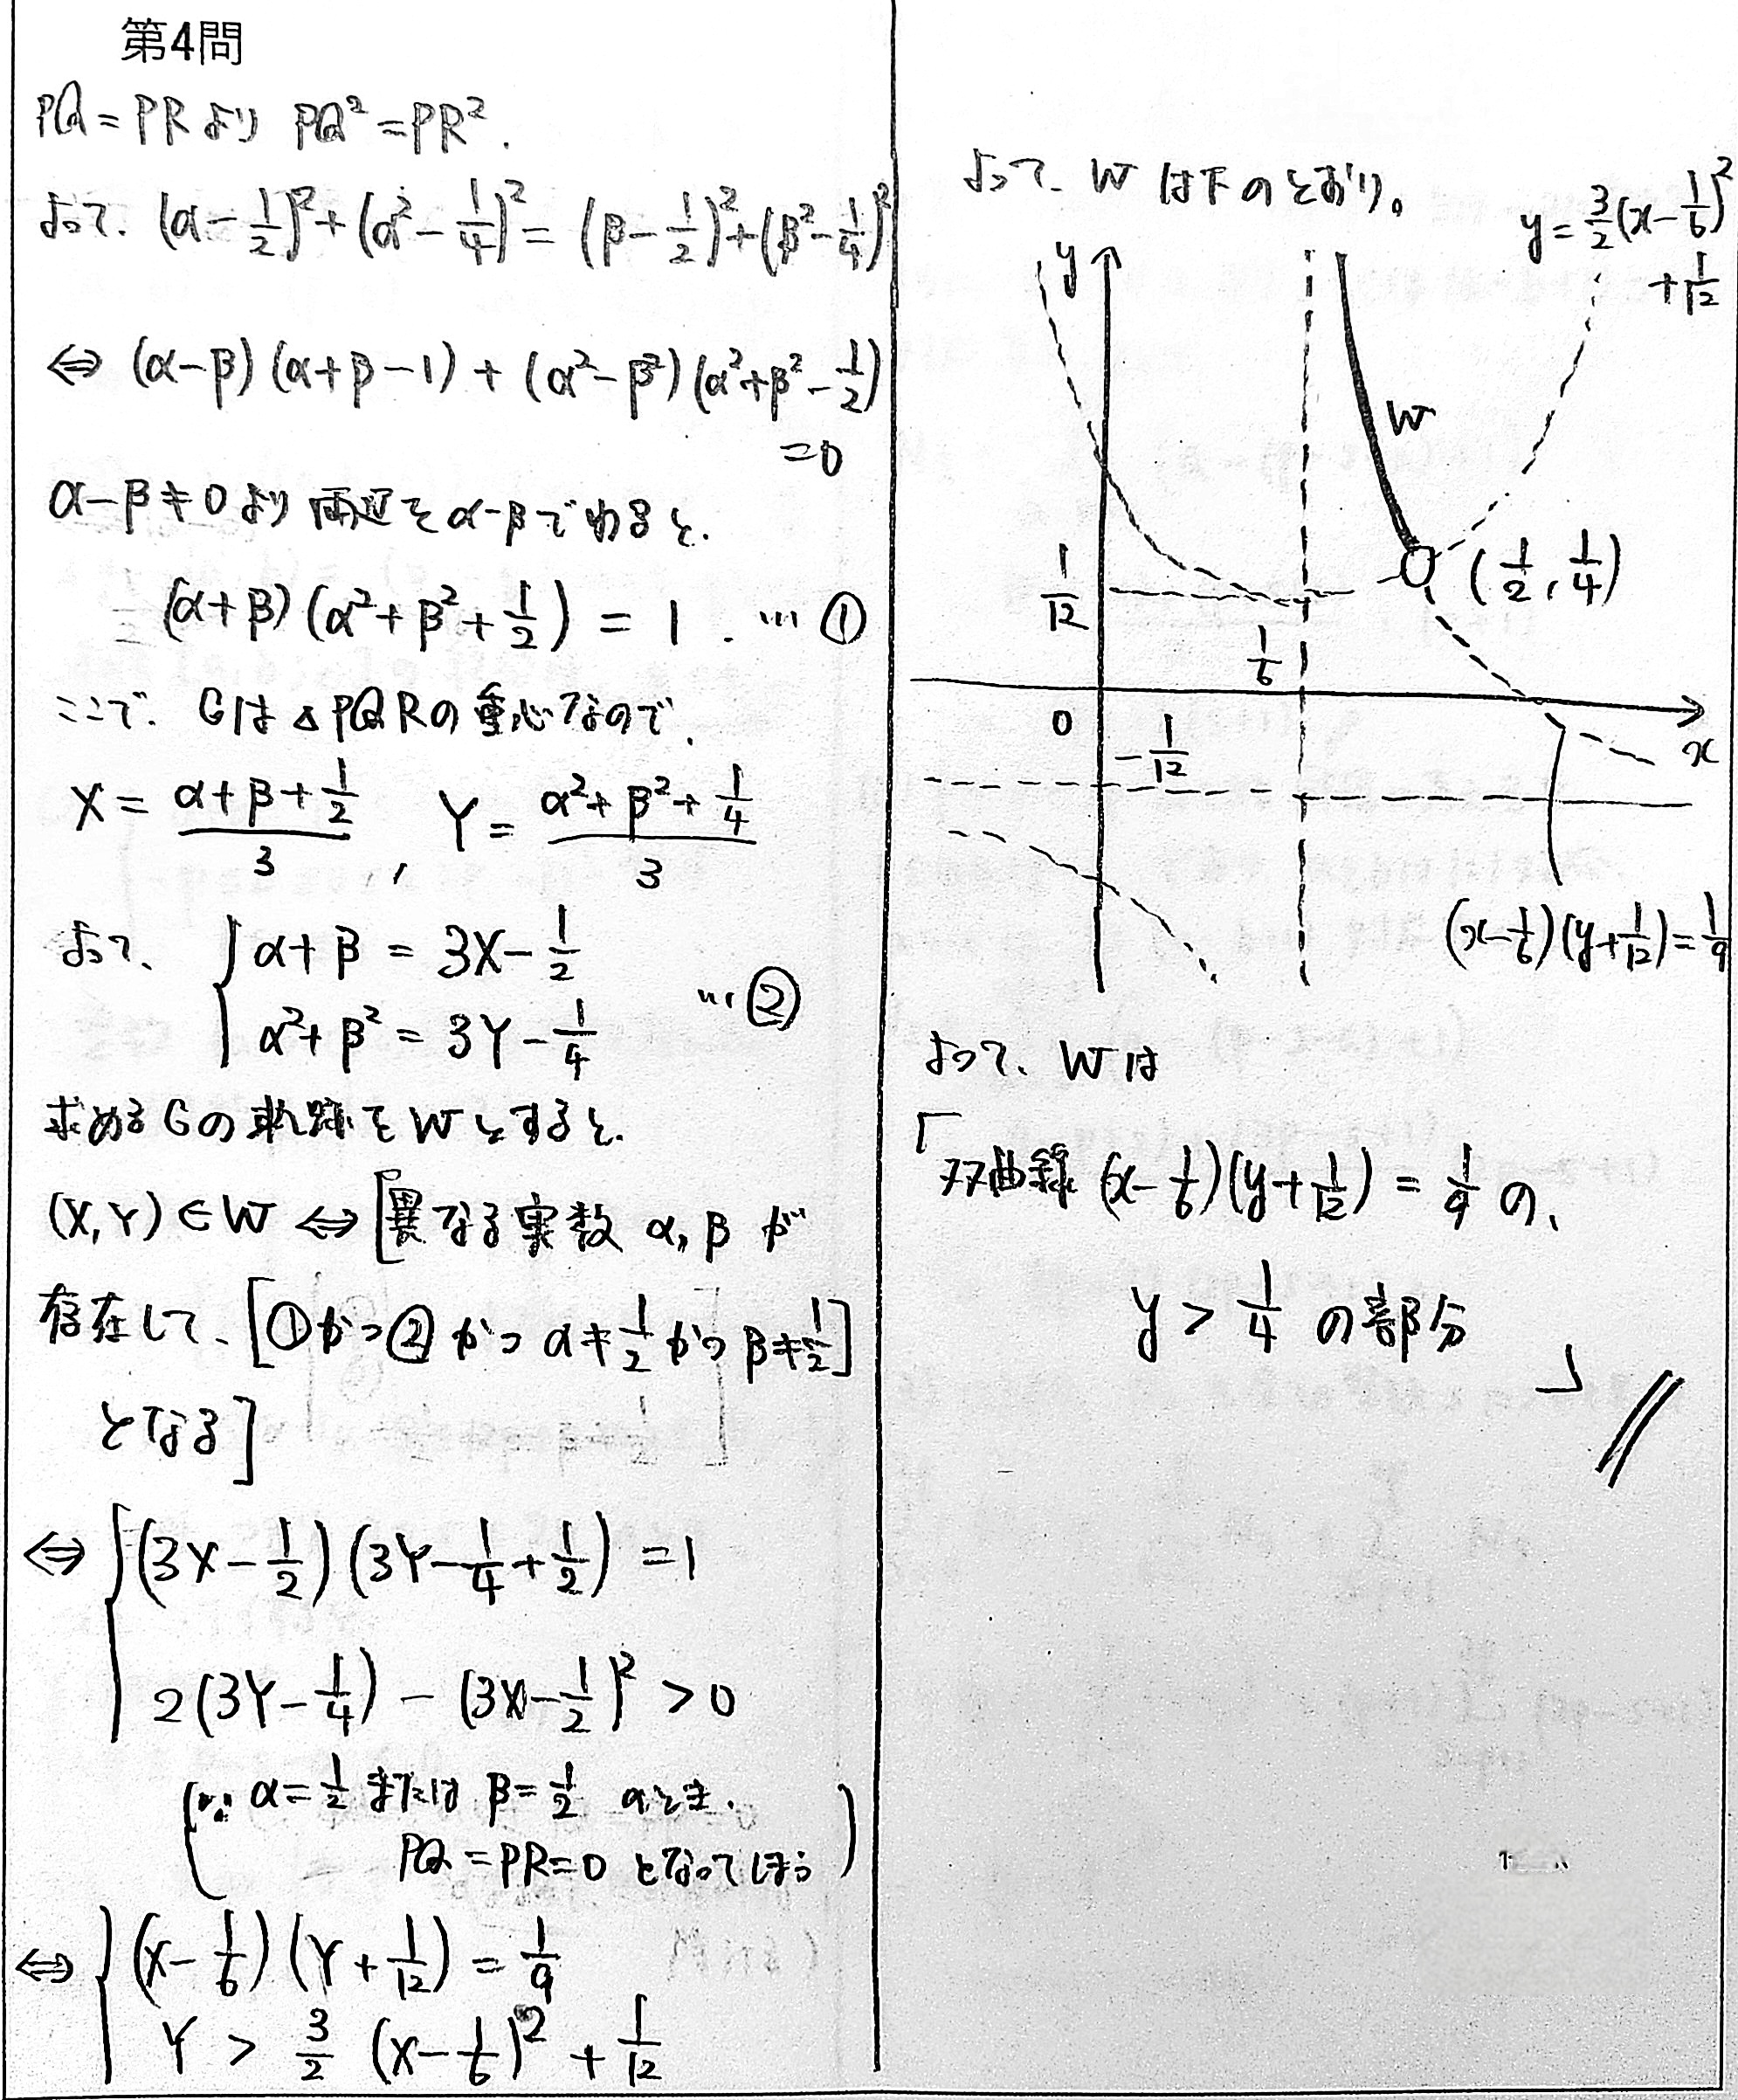 第4問
PQ = PR より PQ² = PR².
よって. (α - 1/2)² + (α² - 1/4)² = (β - 1/2)² + (β² - 1/4)²
⇔ (α-β)(α+β-1) + (α²-β²)(α²+β²-1/2)
=0
α-β≠0 より 両辺を α-β でわると.
(α+β)(α²+β²+1/2) = 1. … ①
ここで. Gは △PQRの重心なので.
X = (α+β+1/2)/3, Y = (α²+β²+1/4)/3
よって、 { α+β = 3X - 1/2
α²+β² = 3Y - 1/4 … ②
求めるGの軌跡をWとすると.
(X,Y)∈W ⇔ [異なる実数 α,β が
存在して、[①かつ②かつ α≠1/2 かつ β≠1/2]
となる]
⇔ { (3X - 1/2)(3Y - 1/4 + 1/2) = 1
2(3Y - 1/4) - (3X - 1/2)² > 0
(∵ α=1/2 または β=1/2 のとき.
PQ=PR=0 となってしまう)
⇔ { (X - 1/6)(Y + 1/12) = 1/9
Y > 3/2 (X - 1/6)² + 1/12
よって. W は下のとおり。
y = 3/2 (x - 1/6)²
+ 1/12
y
W
1/12
(1/2, 1/4)
1/6
0
-1/12
x
(x - 1/6)(y + 1/12) = 1/9
よって、Wは
「双曲線 (x - 1/6)(y + 1/12) = 1/9 の、
y > 1/4 の部分」